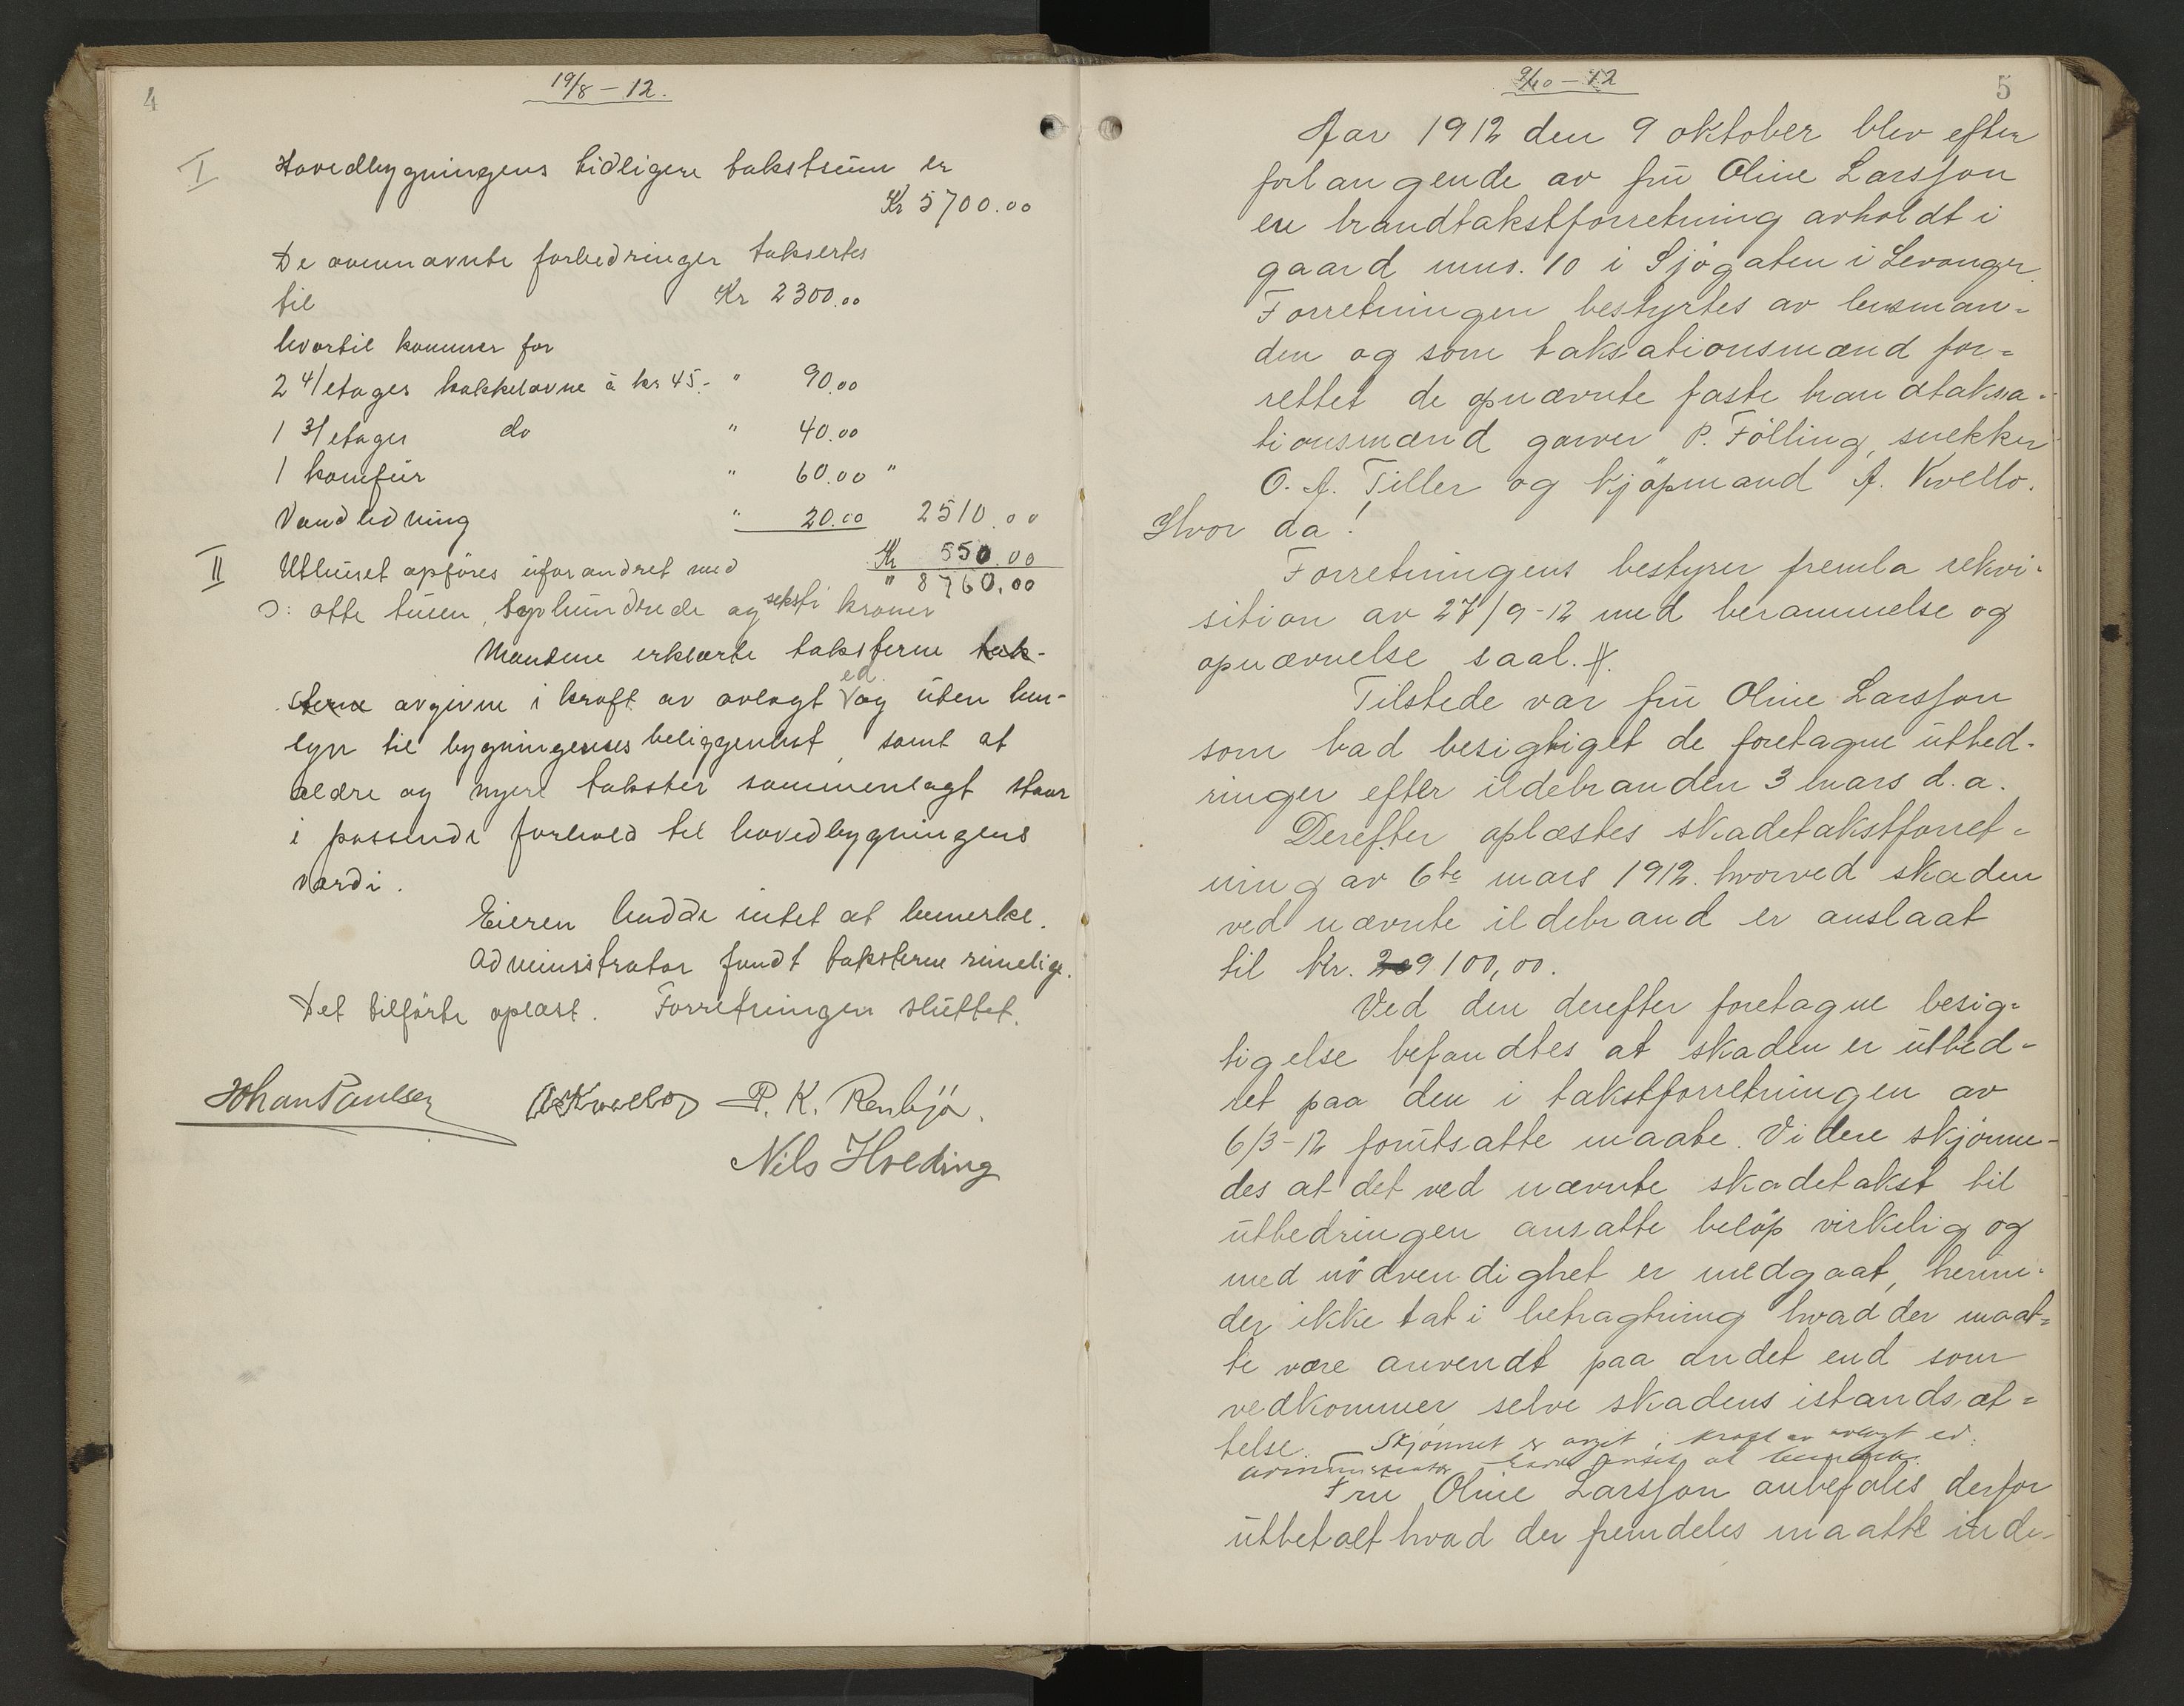 4
19/8 - 12.
I Hovedbygningens tidligere takstsum er
Kr 5700.00
De ovennævnte forbedringer takseres
til Kr 2300.00
hvortil kommer for
2 4/etages kakkelovne à kr 45.- " 90.00
1 3/etages do " 40.00
1 komfür " 60.00 "
Vandledning " 20.00 2510.00
II Uthuset opføres uforandret med Kr 550.00
" 8760.00
ɔ: otte tusen, syvhundrede og seksti kroner
Mændene erklærte taksterne tak-
sterne avgivne i kraft av avlagt ed og uten hen-
syn til bygningenes beliggenhet, samt at
ældre og nyere takster sammenlagt staar
i passende forhold til hovedbygningens
værdi.
Eieren hadde intet at bemerke.
Administrator fandt taksterne rimelige.
Det tilførte oplæst. Forretningen sluttet.
Johan Paulsen A. Kvello P. K. Renbjø.
Nils Hveding
9/10 - 12
5
Aar 1912 den 9 oktober blev efter
forlangende av fru Oline Larsson
en brandtakstforretning avholdt i
gaard mno. 10 i Sjøgaten i Levanger.
Forretningen bestyrtes av lensman=
den og som taksationsmænd for=
rettet de opnævnte faste brandtaksa=
tionsmænd garver P. Følling, snekker
O. A. Tiller og kjøpmand A. Kvello.
Hvor da!
Forretningens bestyrer fremla rekvi=
sition av 27/9-12 med berammelse og
opnævnelse saal.
Tilstede var fru Oline Larsson
som bad besigtiget de foretagne utbed=
ringer efter ildebranden 3 mars d.a.
Derefter oplæstes skadetakstforret=
ning av 6te mars 1912. hvorved skaden
ved nævnte ildebrand er anslaat
til kr. 9100,00.
Ved den derefter foretagne besig=
tigelse befandtes at skaden er utbed=
ret paa den i takstforretningen av
6/3-12 forutsatte maate. Videre skjønne-
des at det ved nævnte skadetakst til
utbedringen ansatte beløp virkelig og
med nødvendighet er medgaat, herun=
der ikke tat i betragtning hvad der maat=
te være anvendt paa andet end som
vedkommer selve skadens istandsæt=
telse. Skjønnet er avgit i kraft av avlagt ed.
Administrator hadde intet at bemerke.
Fru Oline Larsson anbefales derfor
utbetalt hvad der fremdeles maatte inde-